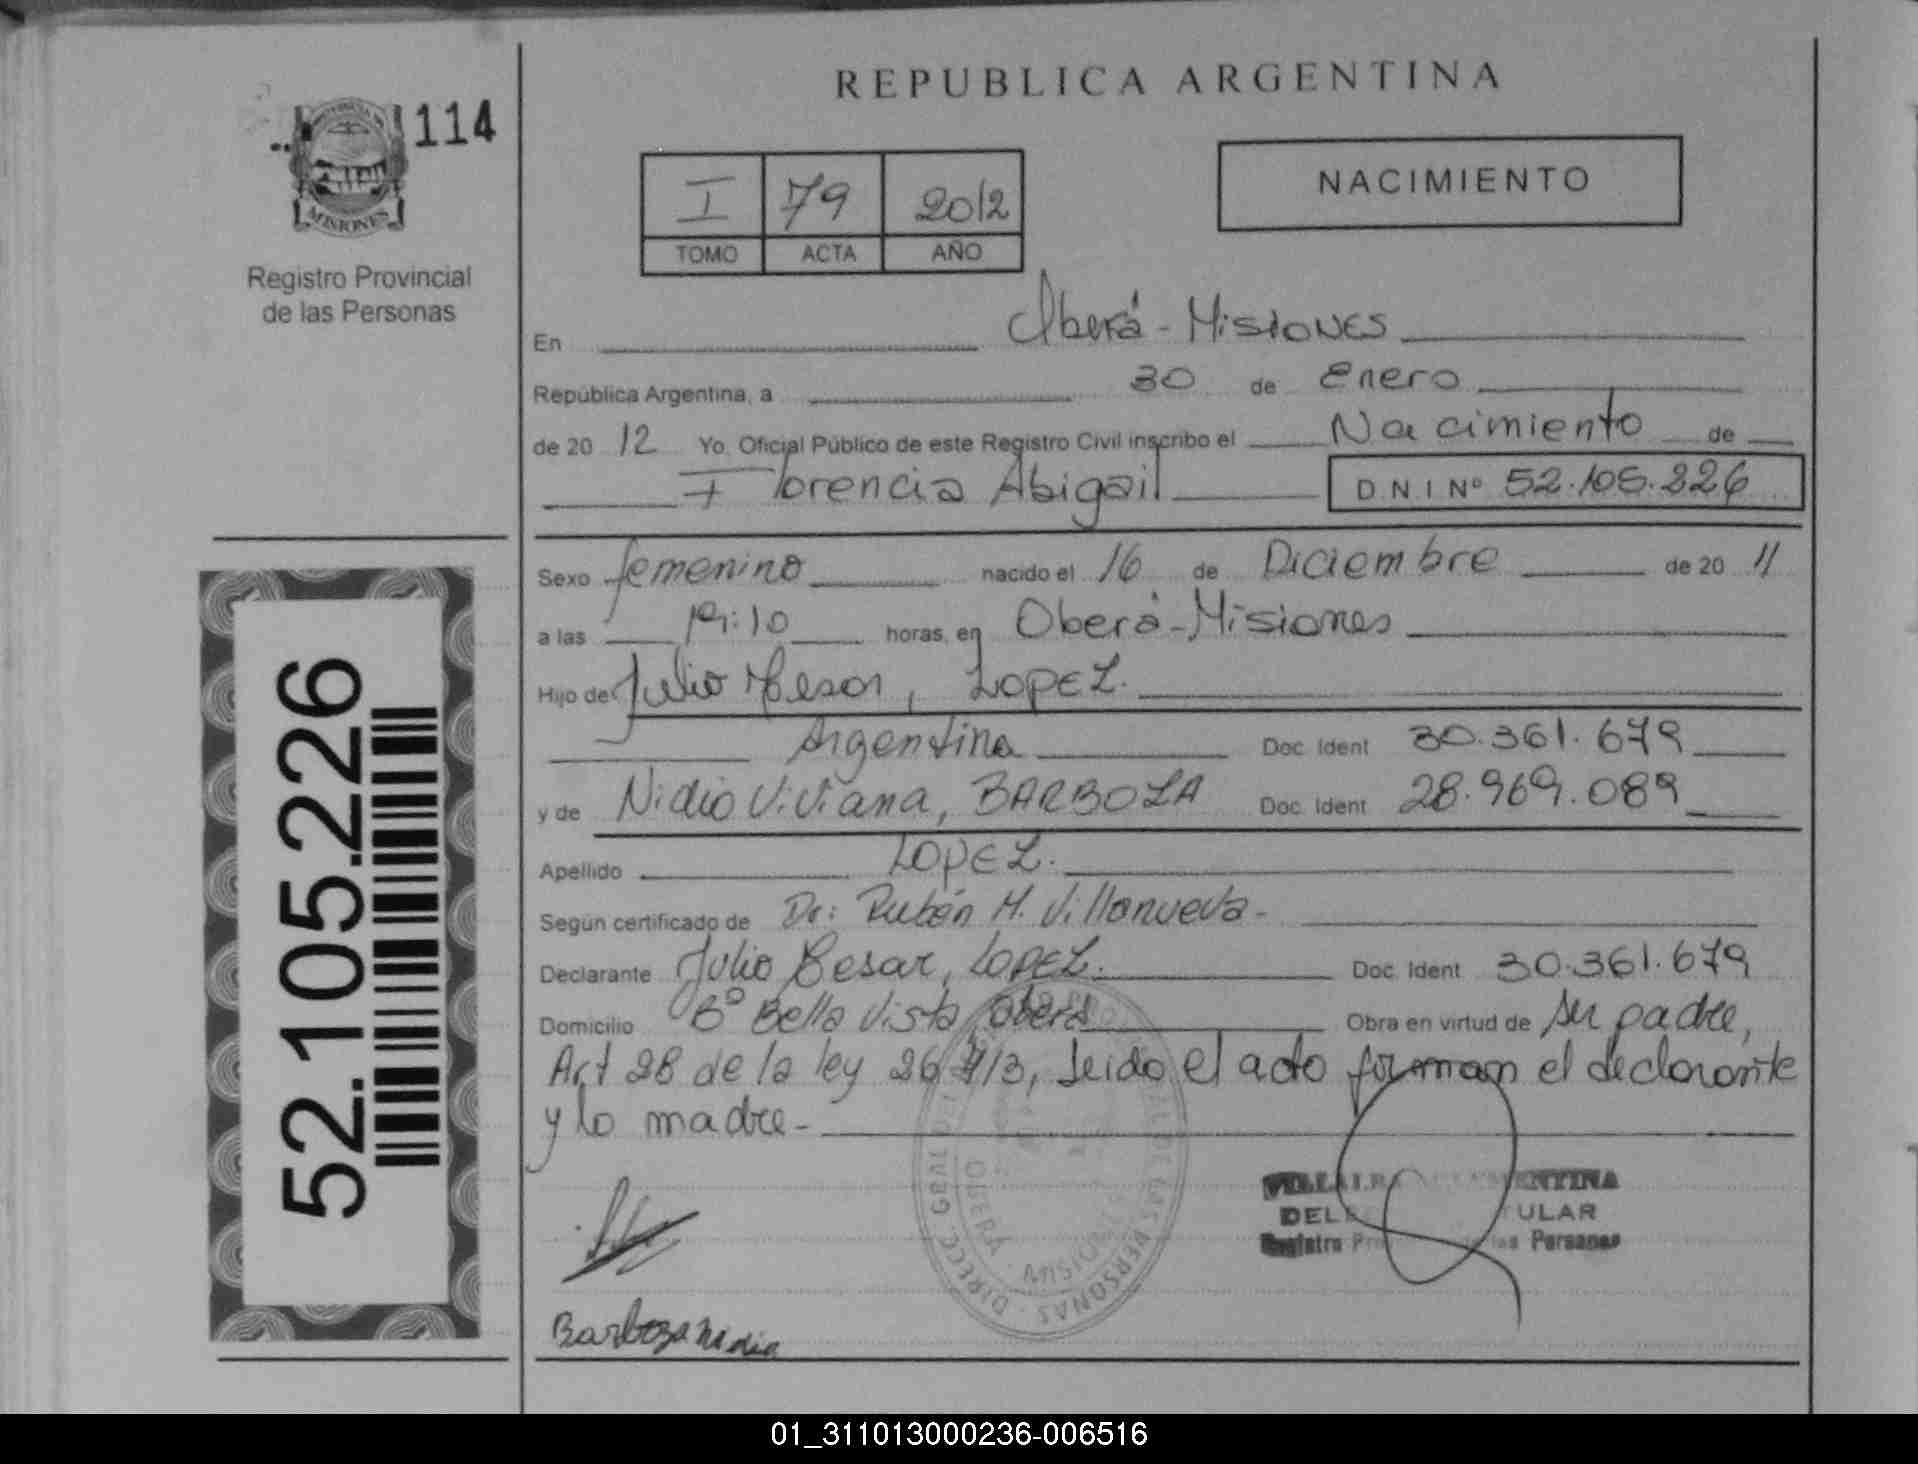 REPUBLICA ARGENTINA
114
MISIONES
Registro Provincial
de las Personas
I 79 2012
TOMO ACTA AÑO
NACIMIENTO
En Oberá - Misiones
República Argentina, a 30 de Enero
de 20 12 Yo, Oficial Público de este Registro Civil inscribo el Nacimiento de
Florencia Abigail D N I Nº 52.105.226
Sexo femenino nacido el 16 de Diciembre de 20 11
a las 19:10 horas, en Oberá - Misiones
Hijo de Julio Cesar, LOPEZ.
Argentina Doc. Ident 30.361.679
y de Nidia Viviana, BARBOZA Doc. Ident 28.969.089
Apellido LOPEZ.
Según certificado de Dr: Rubén M. Villanueva -
Declarante Julio Cesar, LOPEZ. Doc. Ident 30.361.679
Domicilio Bº Bella Vista Oberá Obra en virtud de su padre,
Art 28 de la ley 26413, Leido el acto firman el declarante
y la madre -
DIRECC GRAL DE LAS PERSONAS
OBERA - MISIONES
DEL TULAR
Registro las Personas
Barboza Nidia
52.105.226
01_311013000236-006516